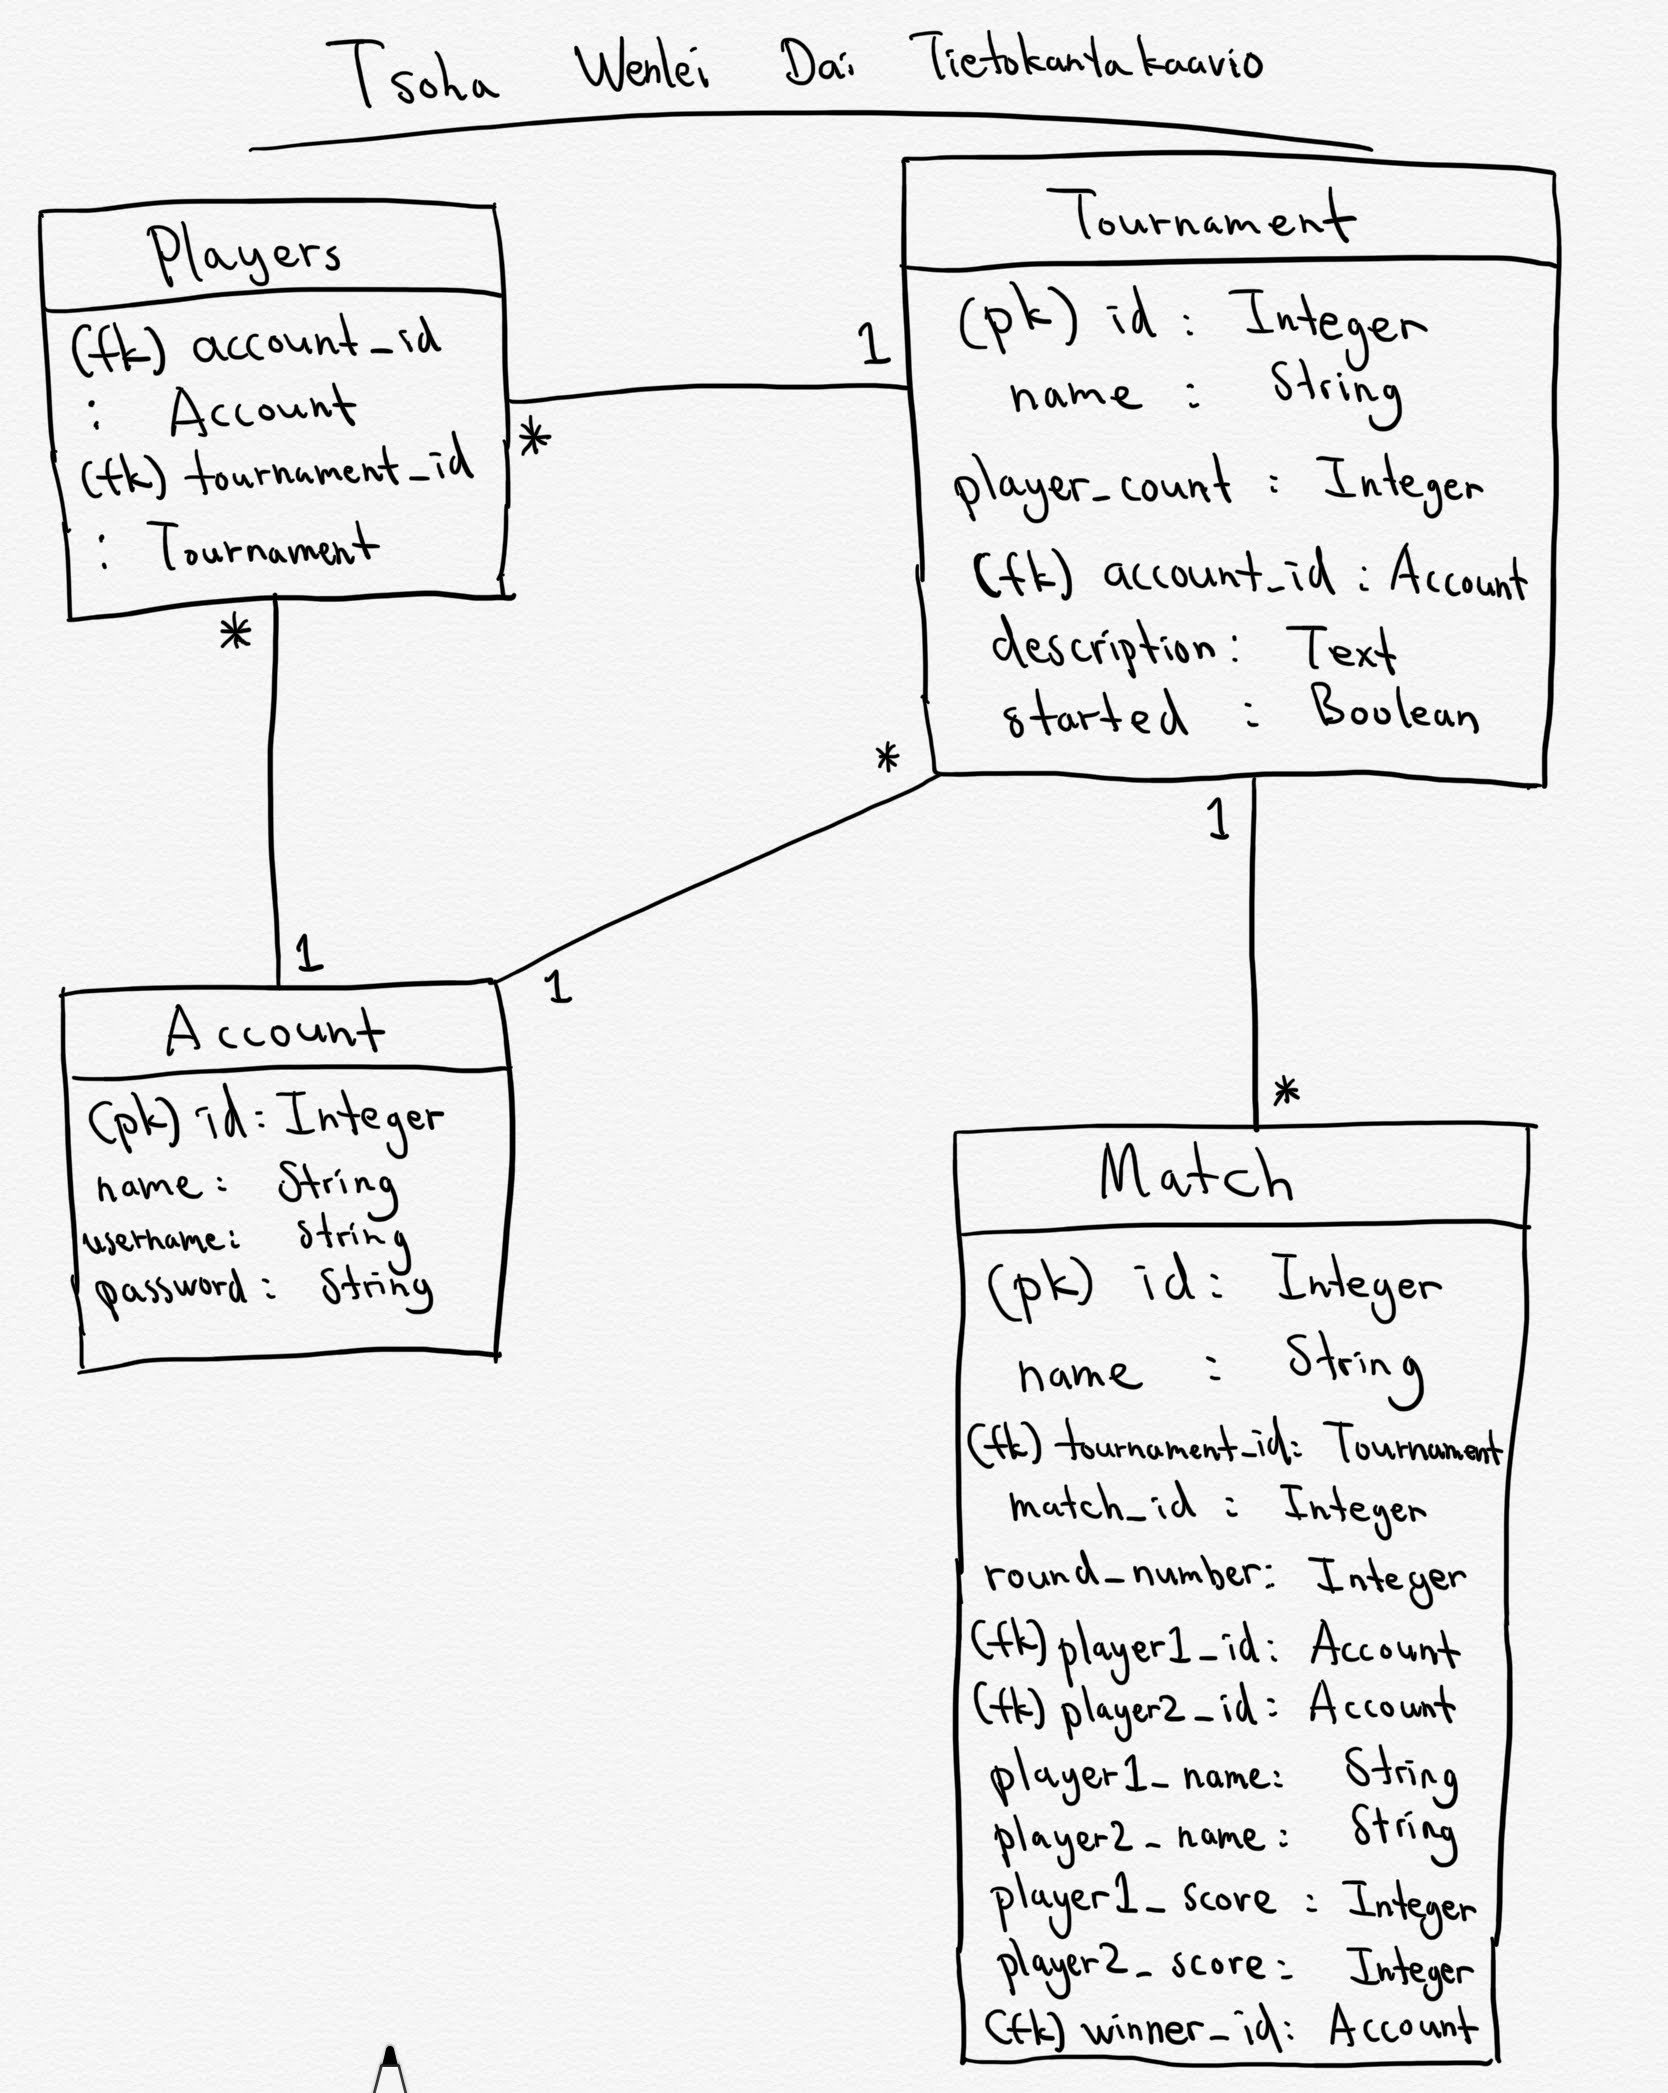 Tsoha Wenlei Dai Tietokantakaavio
Players
(fk) account_id
: Account
(fk) tournament_id
: Tournament
*
1
*
1
Tournament
(pk) id : Integer
name : String
player_count : Integer
(fk) account_id : Account
description : Text
started : Boolean
*
1
1
*
Account
(pk) id : Integer
name : String
username : String
password : String
Match
(pk) id : Integer
name : String
(fk) tournament_id : Tournament
match_id : Integer
round_number : Integer
(fk) player1_id : Account
(fk) player2_id : Account
player1_name : String
player2_name : String
player1_score : Integer
player2_score : Integer
(fk) winner_id : Account